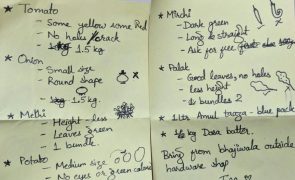 * Tomato
- Some yellow some Red
- No holes / crack
- 1.5 kg
* Onion
- Small size
- Round shape
- 1.5 kg.
* Methi
- Height - less
- Leaves green
- 1 bundle.
* Potato
- Medium size
- No eyes or green
* Mirchi
- Dark green
- Long & straight
- Ask for free
* Palak
- Good leaves, no holes
- less height
- bundles 2
* 1 ltr Amul Taaza - blue pack
* kg Dosa batter.
Bring from bhajiwala outside
hardware shop